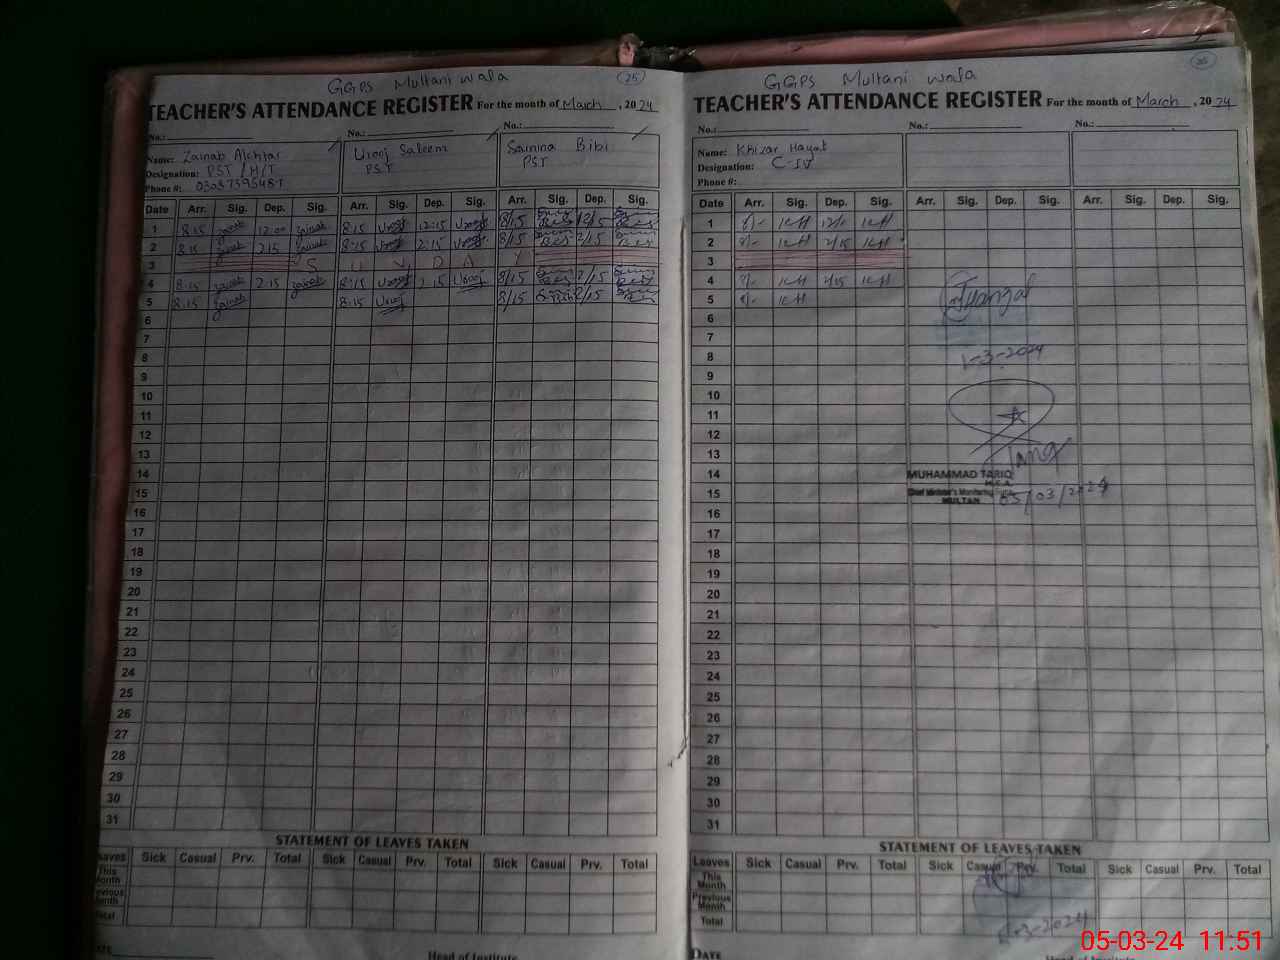 GGPS Multani wala (25)
TEACHER'S ATTENDANCE REGISTER For the month of March, 2024
No.: No.: No.:
Name: Zainab Akhtar Urooj Saleem Samina Bibi
Designation: PST / H/T PST PST
Phone #:
Date Arr. Sig. Dep. Sig. Arr. Sig. Dep. Sig. Arr. Sig. Dep. Sig.
1 8:15 Zainab 12:00 Zainab 8:15 Urooj 12:15 Urooj 8/15 12/15
2 8:15 Zainab 2:15 Zainab 8:15 Urooj 2:15 Urooj 8/15 2/15
3 S U N D A Y
4 8:15 Zainab 2:15 Zainab 8:15 Urooj 2:15 Urooj 8/15 2/15
5 8:15 Zainab 8:15 Urooj 8/15 2/15
6
7
8
9
10
11
12
13
14
15
16
17
18
19
20
21
22
23
24
25
26
27
28
29
30
31
STATEMENT OF LEAVES TAKEN
Leaves Sick Casual Prv. Total Sick Casual Prv. Total Sick Casual Prv. Total
This Month
Previous Month
Total
Head of Institute
GGPS Multani wala
TEACHER'S ATTENDANCE REGISTER For the month of March, 2024
No.: No.: No.:
Name: Khizar Hayat
Designation: C-IV
Phone #:
Date Arr. Sig. Dep. Sig. Arr. Sig. Dep. Sig. Arr. Sig. Dep. Sig.
1 8/- KH 12/- KH
2 8/- KH 2/15 KH
3
4 8/- KH 2/15 KH
5 8/- KH
6
7
8 1-3-2024
9
10
11
12
13
14 MUHAMMAD TARIQ
M.E.A.
15 Chief Minister's Monitoring Force 05/03/2024
MULTAN
16
17
18
19
20
21
22
23
24
25
26
27
28
29
30
31
STATEMENT OF LEAVES TAKEN
Leaves Sick Casual Prv. Total Sick Casual Prv. Total Sick Casual Prv. Total
This Month
Previous Month
Total
DATE Head of Institute
05-03-24 11:51